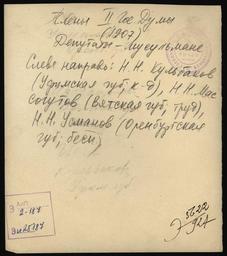 Члены II Гос. Думы
(1907)
Депутаты - мусульмане
Слева направо: Н.Н. Кульбаков
(Уфимская губ, к-д), Н.Н. Мас
согутов (Вятская губ, труд),
Н.Н. Усманов (Оренбургская
губ; бесп)
2-187
5622
Э 924